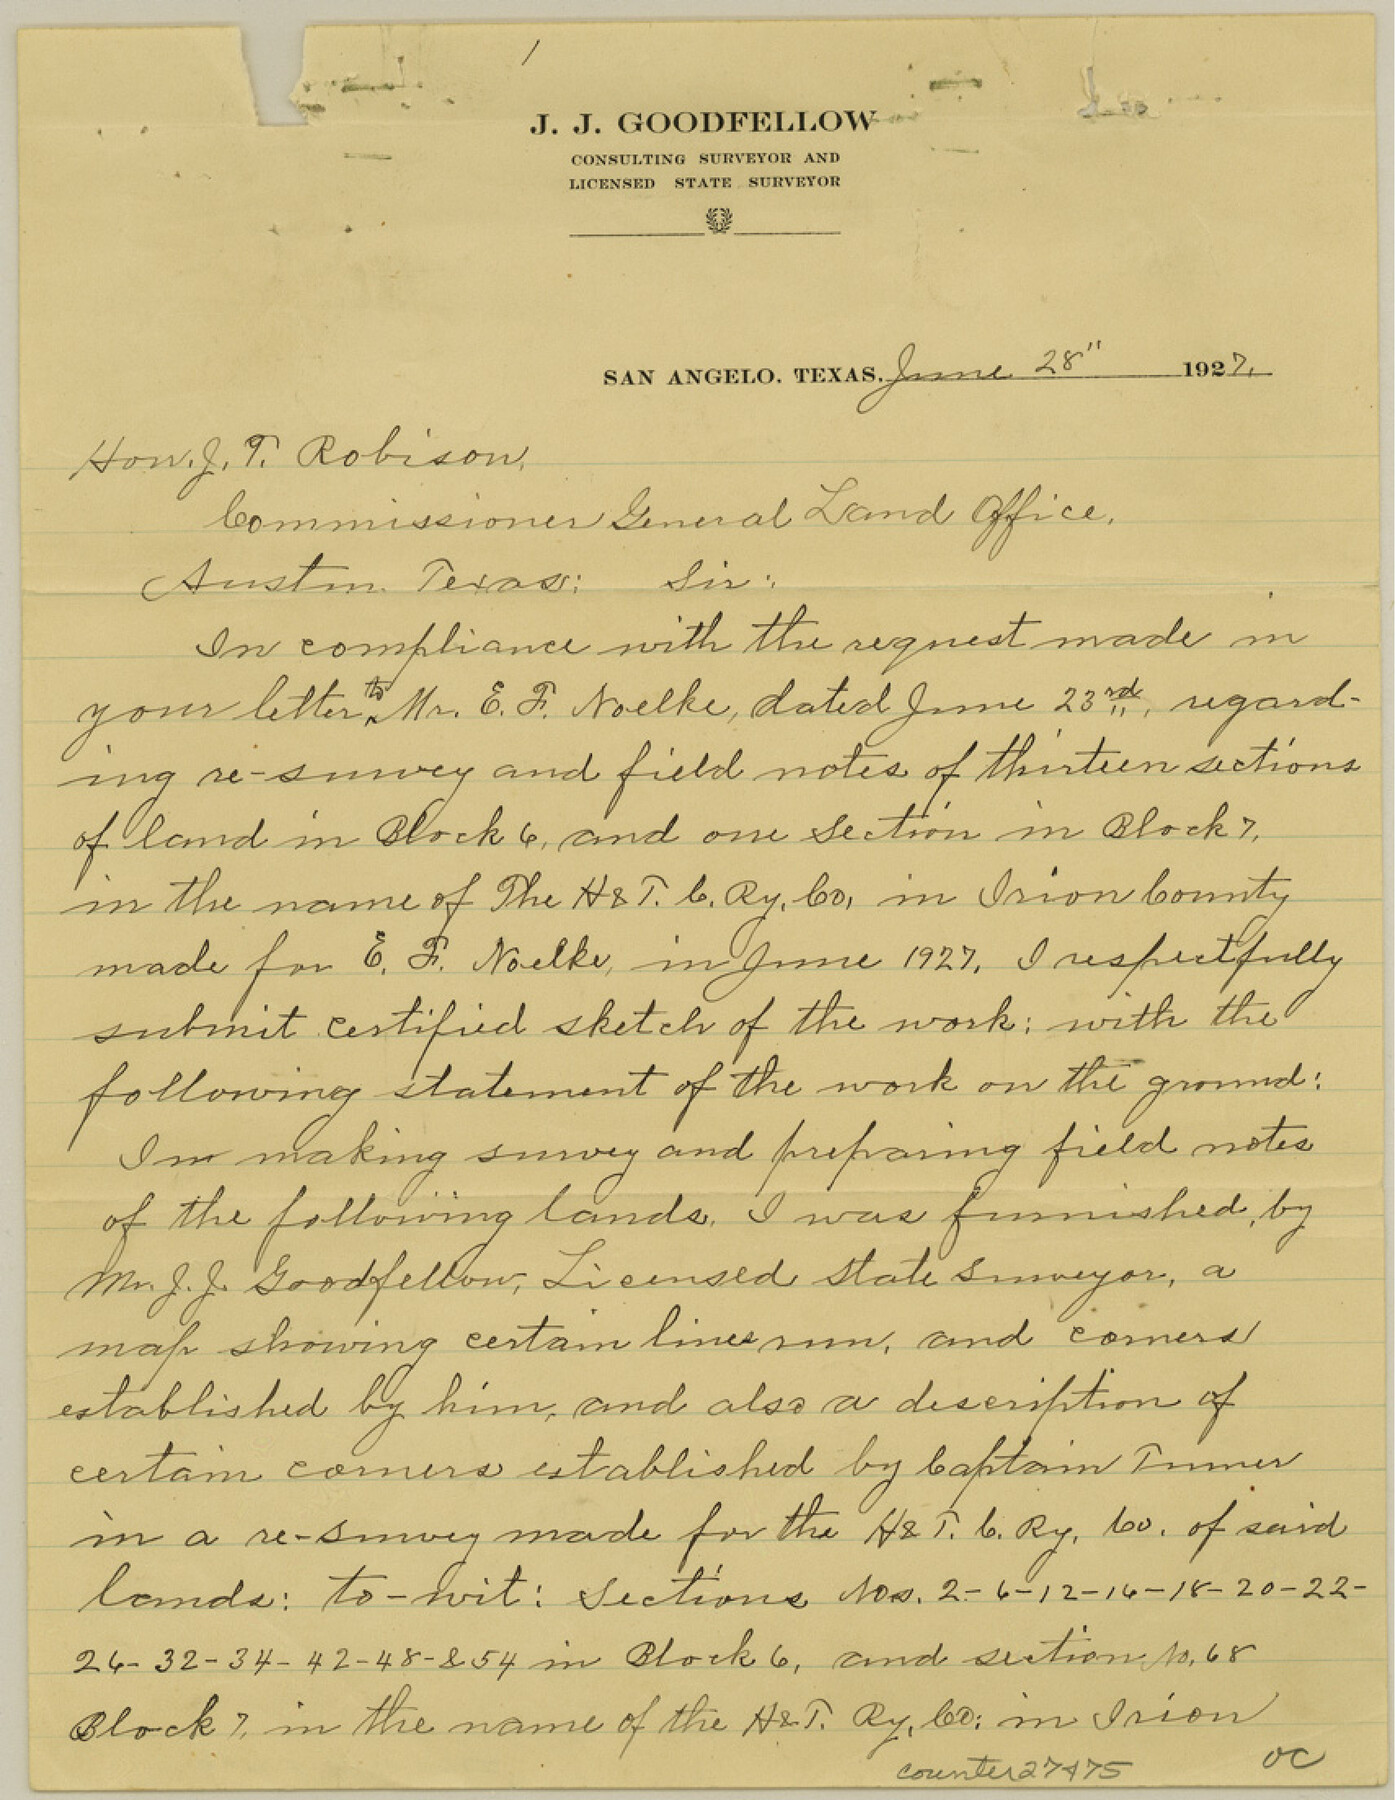 1
J. J. GOODFELLOW
CONSULTING SURVEYOR AND
LICENSED STATE SURVEYOR
SAN ANGELO, TEXAS. June 28" 1927.
Hon. J. T. Robison,
Commissioner General Land Office,
Austin Texas: Sir:
In compliance with the request made in
your letter to Mr. E. F. Noelke, dated June 23rd, regard-
ing re-survey and field notes of thirteen sections
of land in Block 6, and one Section in Block 7,
in the name of The H&T. C. Ry. Co, in Irion County
made for E. F. Noelke, in June 1927. I respectfully
submit certified sketch of the work; with the
following statement of the work on the ground:
In making survey and preparing field notes
of the following lands. I was furnished, by
Mr. J. J. Goodfellow, Licensed State Surveyor, a
map showing certain lines run, and corners
established by him, and also a description of
certain corners established by Captain Turner
in a re-survey made for the H&T. C. Ry. Co. of said
lands: to-wit: Sections Nos. 2-6-12-16-18-20-22-
26-32-34-42-48-&54 in Block 6, and section No. 68
Block 7, in the name of the H&T. Ry. Co; in Irion
counter27475 OC